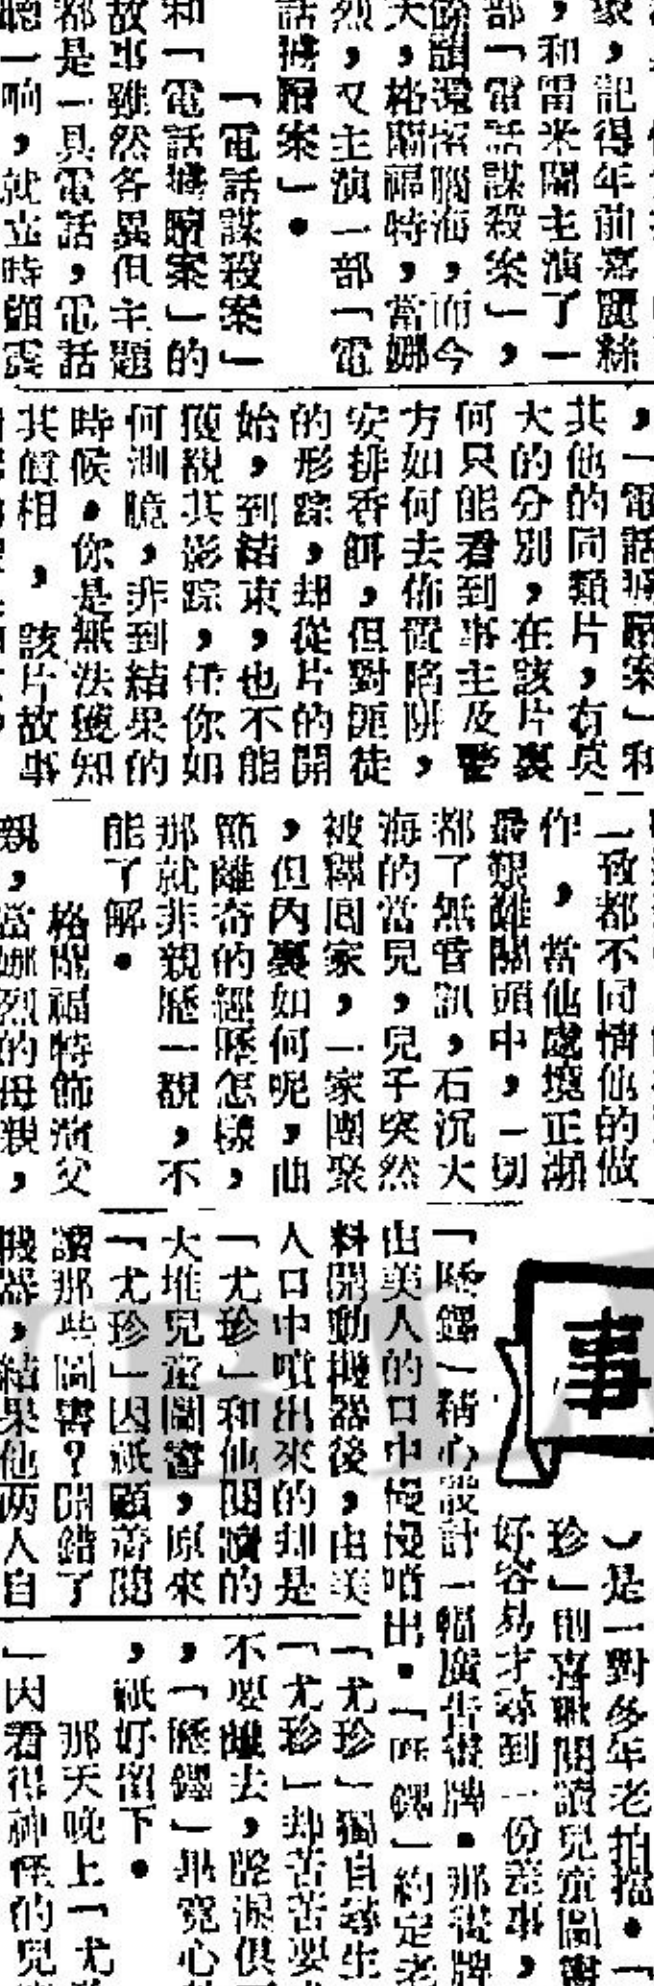 象，記得年前嘉麗絲
，和雷米蘭主演了一
部「電話謀殺案」，
餘韻還留腦海，而今
天，格蘭福特，當娜
烈，又主演一部「電
話擄案」。
「電話謀殺案」
和「電話擄案」的
故事雖然各異但主題
都是一具電話，電話
聽一响，就立時顫震
，「電話案」和
其他的同類片，有莫
大的分別，在該片裏
何只能看到事主及警
方如何去佈置陷阱，
安排香餌，但對匪徒
的形踪，却從片的開
始，到結束，也不能
獲覩其影踪，任你如
何測臆，非到結果的
時候，你是無法獲知
其眞相，該片故事
一致都不同情他的做
作，當他處境正瀕
最艱難關頭中，一切
都了無音訊，石沉大
海的當兒，兒子突然
被釋回家，一家團聚
，但內裏如何呢，曲
節離奇的經歷怎樣，
那就非親歷一覩，不
能了解。
格蘭福特飾演父
親，當娜烈的母親，
事
）是一對多年老拍檔。「
珍」則喜歡閱讀兒童圖書
好容易才尋到一份差事，
「歷鐸」精心設計一幅廣告畫牌。那畫牌
由美人的口中慢慢噴出。「歷鐸」約定老
料開動機器後，由美
人口中噴出來的却是
「尤珍」和他閱讀的
大堆兒童圖書，原來
「尤珍」因祇顧着閱
讀那些圖書？開錯了
機器，結果他两人自
「尤珍」獨自尋生
「尤珍」却苦苦要
不要離去，聲淚俱
，「歷鐸」果寬心
，祇好留下。
那天晚上「尤
」因看得神怪的兒